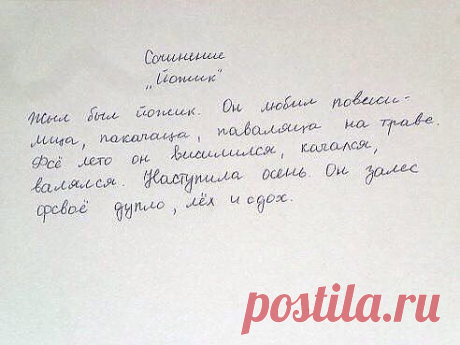 Сочинение
„Йожик"
Жыл был йожик. Он любил повиси-
лица, пакачаца, паваляца на траве.
Фсё лето он висилился, качался,
валялся. Наступила осень. Он залес
фсваё дупло, лёх и сдох.
postila.ru